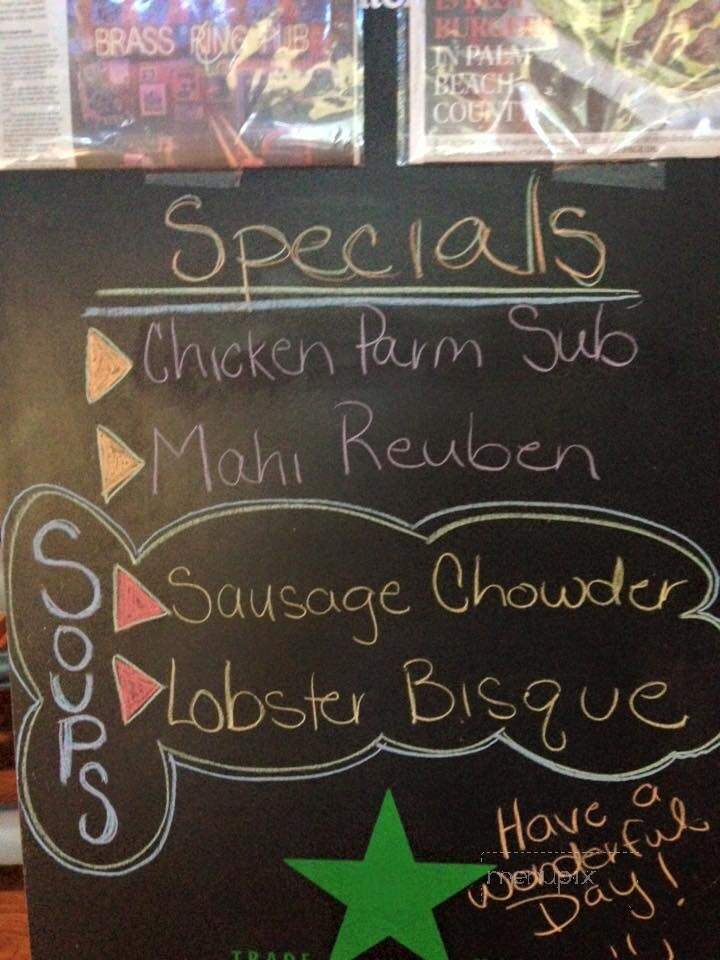 BRASS RING PUB
BURGERS
IN PALM
BEACH
COUNTY
Specials
Chicken Parm Sub
Mahi Reuben
SOUPS
Sausage Chowder
Lobster Bisque
Have a
wonderful
Day!
menupix
TRADE